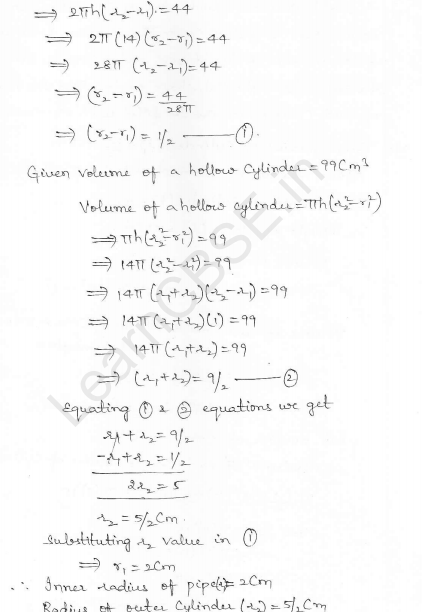 ⇒ 2πh(r₂-r₁)=44
⇒ 2π(14)(r₂-r₁)=44
⇒ 28π (r₂-r₁)=44
⇒ (r₂-r₁) = 44/28π
⇒ (r₂-r₁) = 1/2 —— ①.
Given volume of a hollow cylinder = 99Cm³
Volume of a hollow cylinder = πh(r₂²-r₁²)
⇒ πh(r₂²-r₁²)=99
⇒ 14π(r₂²-r₁²)=99
⇒ 14π(r₁+r₂)(r₂-r₁)=99
⇒ 14π(r₁+r₂)(1)=99
⇒ 14π(r₁+r₂)=99
⇒ (r₁+r₂)=9/2 —— ②
Equating ① & ② equations we get
r₁+r₂=9/2
-r₁+r₂=1/2
2r₂=5
r₂=5/2Cm.
Substituting r₂ value in ①
⇒ r₁=2Cm
∴ Inner radius of pipe(r₁)=2Cm
Radius of outer Cylinder (r₂)=5/2Cm
LearnCBSE.in